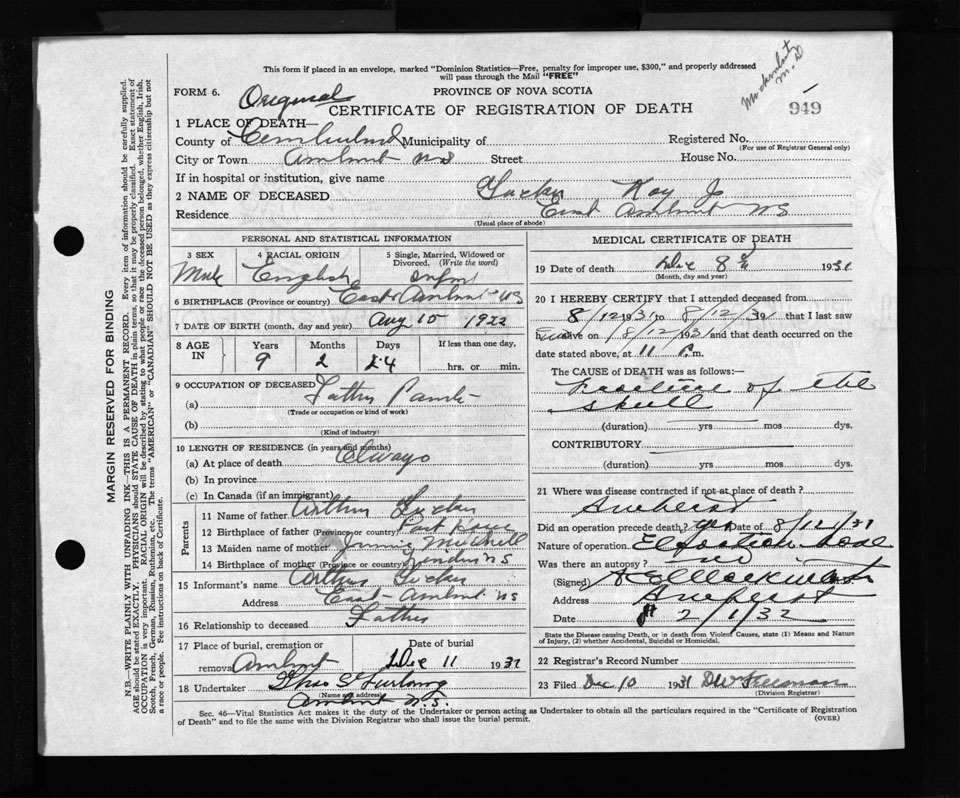 This form if placed in an envelope, marked "Dominion Statistics—Free, penalty for improper use, $300," and properly addressed
will pass through the Mail "FREE"
FORM 6. Original PROVINCE OF NOVA SCOTIA
CERTIFICATE OF REGISTRATION OF DEATH
M.D.
949
1 PLACE OF DEATH—
County of Cumberland Municipality of Registered No.
(For use of Registrar General only)
City or Town Amherst NS Street House No.
If in hospital or institution, give name
2 NAME OF DECEASED
Residence East Amherst NS
(Usual place of abode)
PERSONAL AND STATISTICAL INFORMATION
3 SEX 4 RACIAL ORIGIN 5 Single, Married, Widowed or Divorced. (Write the word)
Male English
6 BIRTHPLACE (Province or country) East Amherst NS
7 DATE OF BIRTH (month, day and year) Aug 15 1922
8 AGE IN Years Months Days If less than one day,
9 2 24 hrs. or min.
9 OCCUPATION OF DECEASED
(a)
(Trade or occupation or kind of work)
(b)
(Kind of industry)
10 LENGTH OF RESIDENCE (in years and months)
(a) At place of death Always
(b) In province
(c) In Canada (if an immigrant)
Parents
11 Name of father Arthur
12 Birthplace of father (Province or country)
13 Maiden name of mother Mitchell
14 Birthplace of mother (Province or country) NS
15 Informant's name Arthur
Address East Amherst NS
16 Relationship to deceased Father
17 Place of burial, cremation or removal Amherst Date of burial Dec 11 1931
18 Undertaker Furlong
(Name and address)
Amherst N.S.
MEDICAL CERTIFICATE OF DEATH
19 Date of death Dec 8 1931
(Month, day and year)
20 I HEREBY CERTIFY that I attended deceased from
8/12 1931 to 8/12/31 that I last saw
alive on 8/12/31 and that death occurred on
date stated above, at 11 P.m.
The CAUSE of DEATH was as follows:
Fracture of the
skull
(duration) yrs mos dys.
CONTRIBUTORY
(duration) yrs mos dys.
21 Where was disease contracted if not at place of death?
Amherst
Did an operation precede death? yes Date of 8/12/31
Nature of operation
Was there an autopsy? no
(Signed)
Address Amherst
Date 2/1/32
State the Disease causing Death, or in death from Violent Causes, state (1) Means and Nature
of Injury, (2) whether Accidental, Suicidal or Homicidal.
22 Registrar's Record Number
23 Filed Dec 10 1931
(Division Registrar)
Sec. 46—Vital Statistics Act makes it the duty of the Undertaker or person acting as Undertaker to obtain all the particulars required in the "Certificate of Registration
of Death" and to file the same with the Division Registrar who shall issue the burial permit.
(OVER)
MARGIN RESERVED FOR BINDING
N.B.—WRITE PLAINLY WITH UNFADING INK—THIS IS A PERMANENT RECORD. Every item of information should be carefully supplied.
AGE should be stated EXACTLY. PHYSICIANS should STATE CAUSE OF DEATH in plain terms, so that it may be properly classified. Exact statement of
OCCUPATION is very important. RACIAL ORIGIN will be described by stating to what people or race the deceased person belonged, whether English, Irish,
Scotch, French, German, Russian, Ruthenian, etc. The terms "AMERICAN" or "CANADIAN" SHOULD NOT BE USED as they express citizenship but not
a race or people. See instructions on back of Certificate.